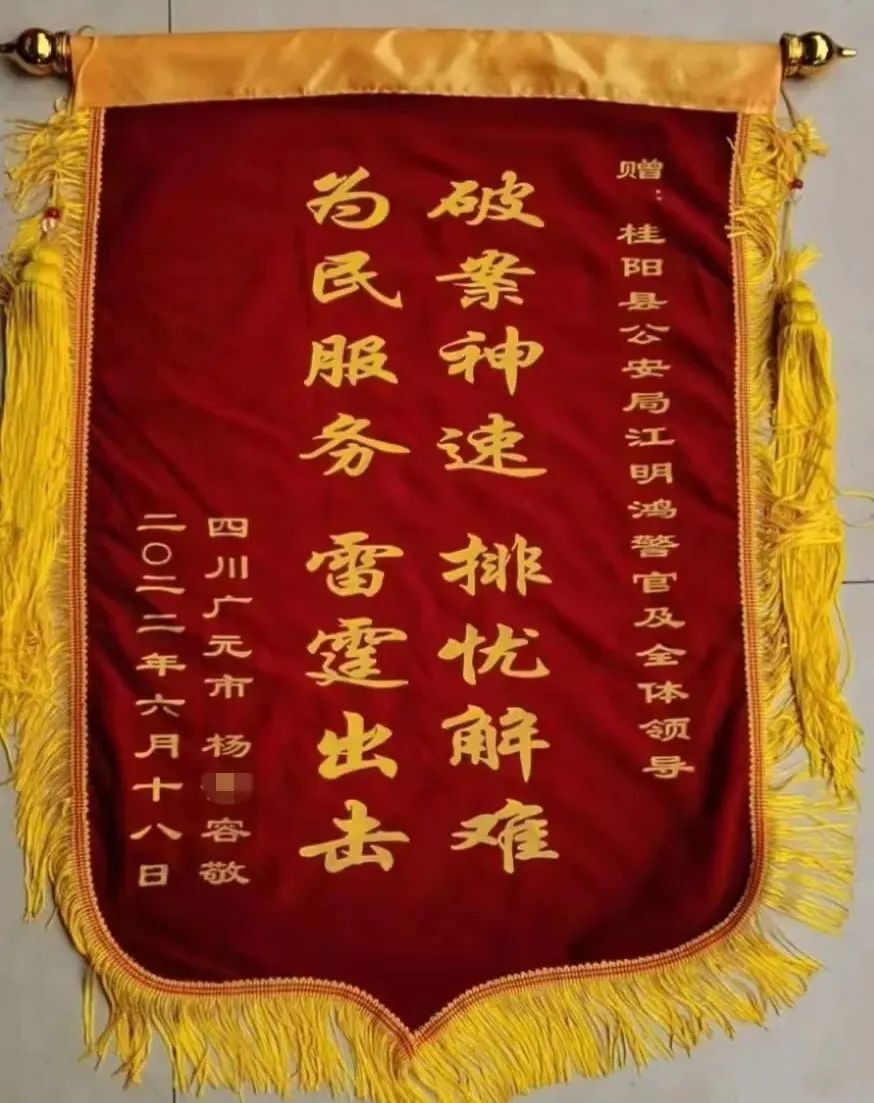 赠：桂阳县公安局江明鸿警官及全体领导
破案神速 排忧解难
为民服务 雷霆出击
四川广元市 杨 容敬
二〇二二年六月十八日